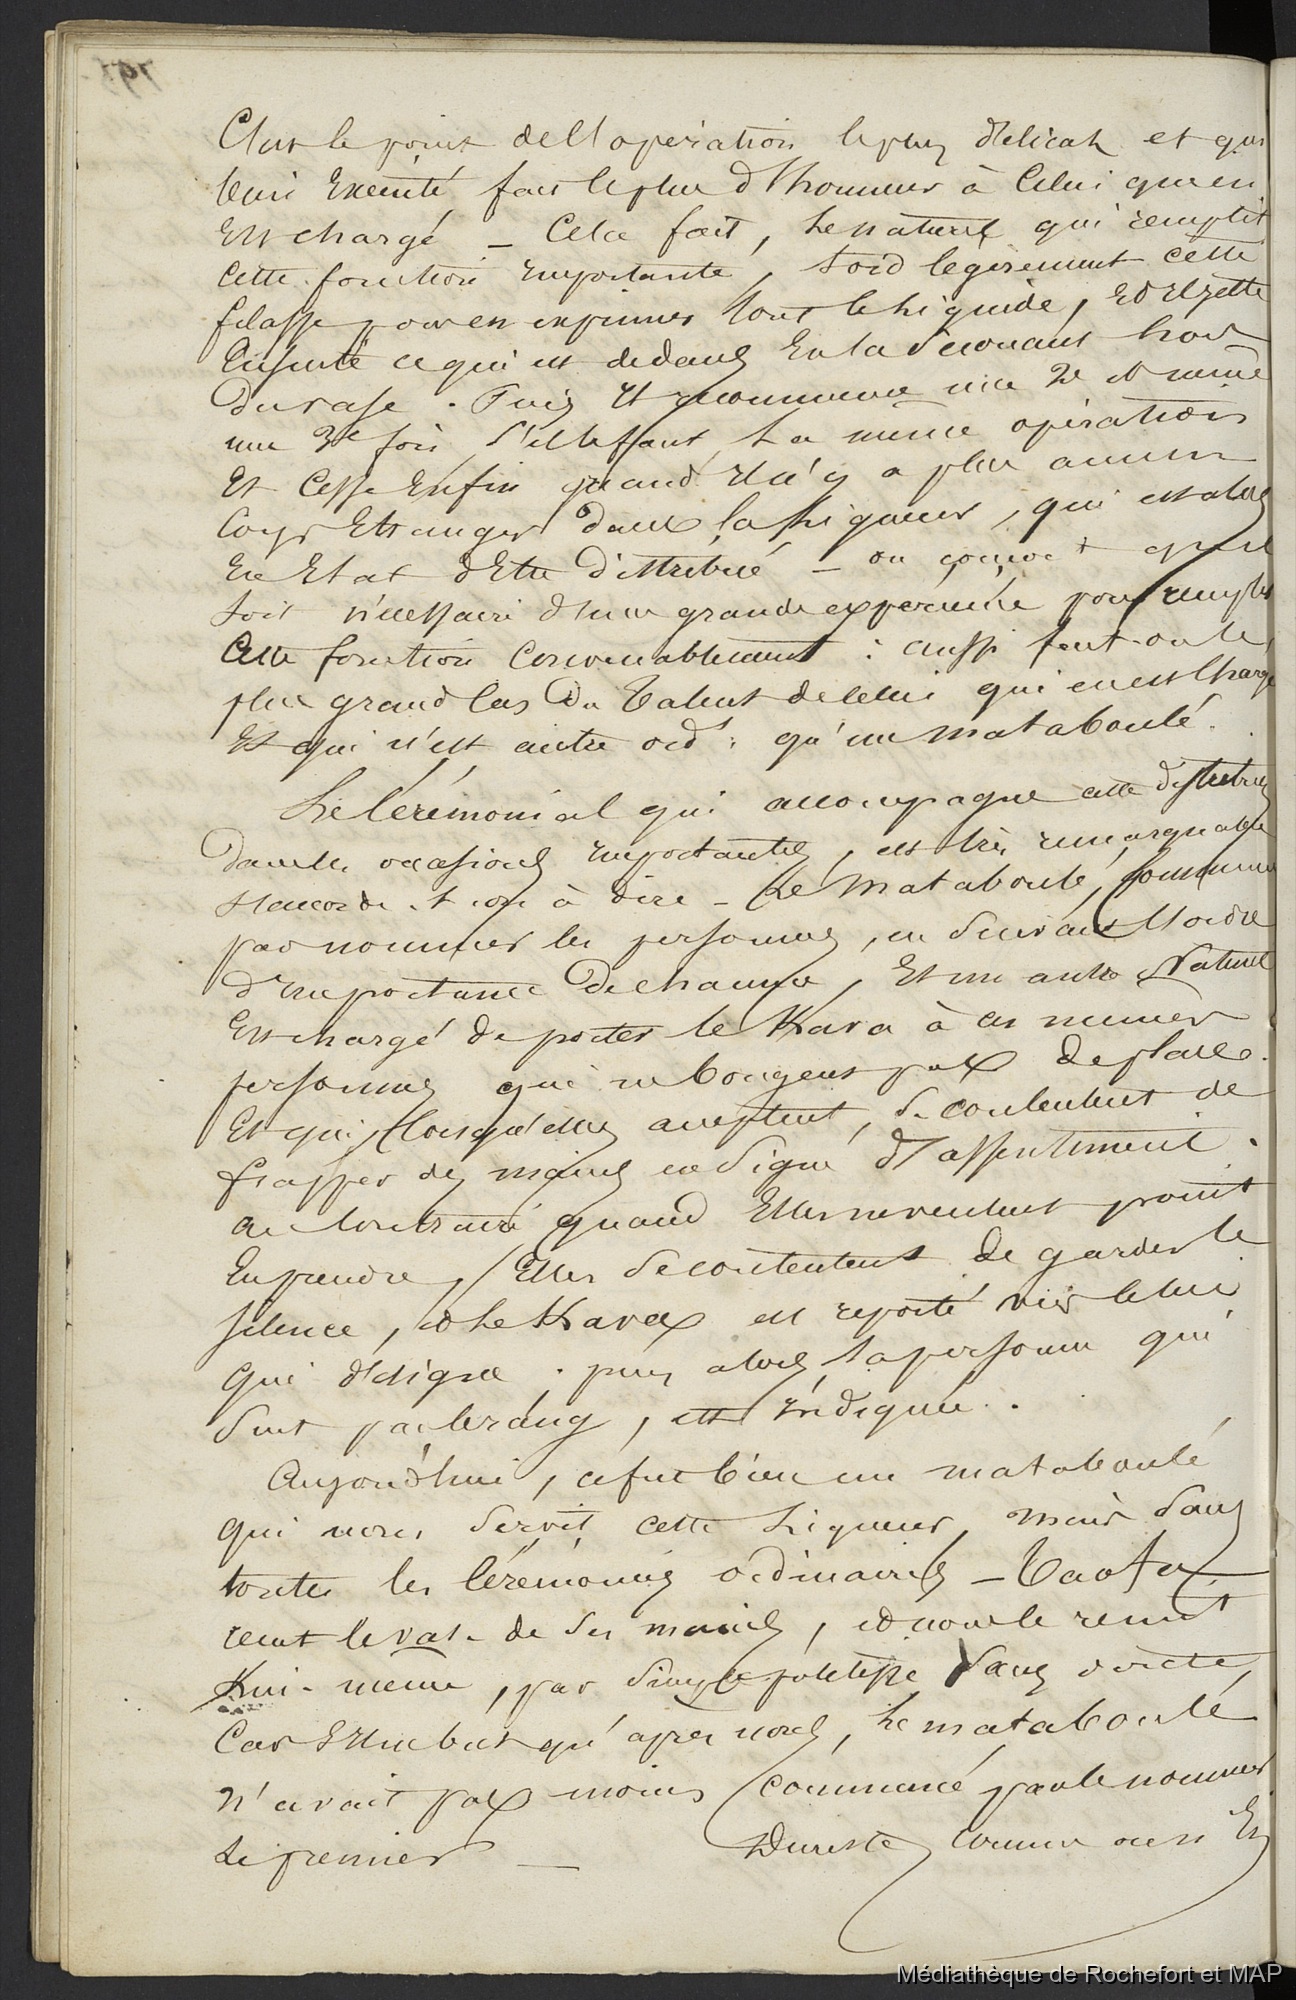 C'est le point de l'opération le plus délicat et qui
bien exécuté, fait le plus d'honneur à celui qui en
est chargé _ Cela fait, le naturel qui remplit
cette fonction importante, tord legèrement cette
filasse pour en exprimer tout le liquide, et rejette
ensuite ce qui est dedans en la secouant hors
du vase. Puis il recommence une 2e et même
une 3e fois, s'il le faut, la même opération
et cesse enfin quand il n'y a plus aucun
corps étranger dans la liqueur, qui est alors
en état d'être distribué _ on conçoit qu'il
soit nécessaire d'une grande expérience pour remplir
cette fonction convenablement : aussi fait-on le
plus grand cas du talent de celui qui en est chargé
et qui n'est autre ord. qu'un mataboulé.
Le cérémonial qui accompagne cette distribution
dans les occasions importantes, est très remarquable
s'accorde t on à dire _ Le mataboulé, commence
par nommer les personnes, en suivant l'ordre
d'importance de chacune, et un autre naturel
est chargé de porter le Kava à ces mêmes
personnes qui ne bougent pas de place.
et qui, lorsqu'elles acceptent, se contentent de
frapper des mains en signe d'assentiment.
au contraire quand elles ne veulent point
en prendre, elles se contentent de garder le
silence, et le Kava est reporté vers celui
qui désigne. puis alors, la personne qui
suit par le rang, est indiquée.
Aujourd'hui, ce fut bien un mataboulé
qui nous servit cette liqueur, mais sans
toutes les cérémonies ordinaires _ Taofa
reçut le vase de ses mains, et nous le remit
lui-même, par simple politesse sans doute,
car il ne but qu'après nous, le mataboulé
n'avait pas moins commencé par le nommer
le premier _ Du reste, comme aussi En
795
Médiathèque de Rochefort et MAP